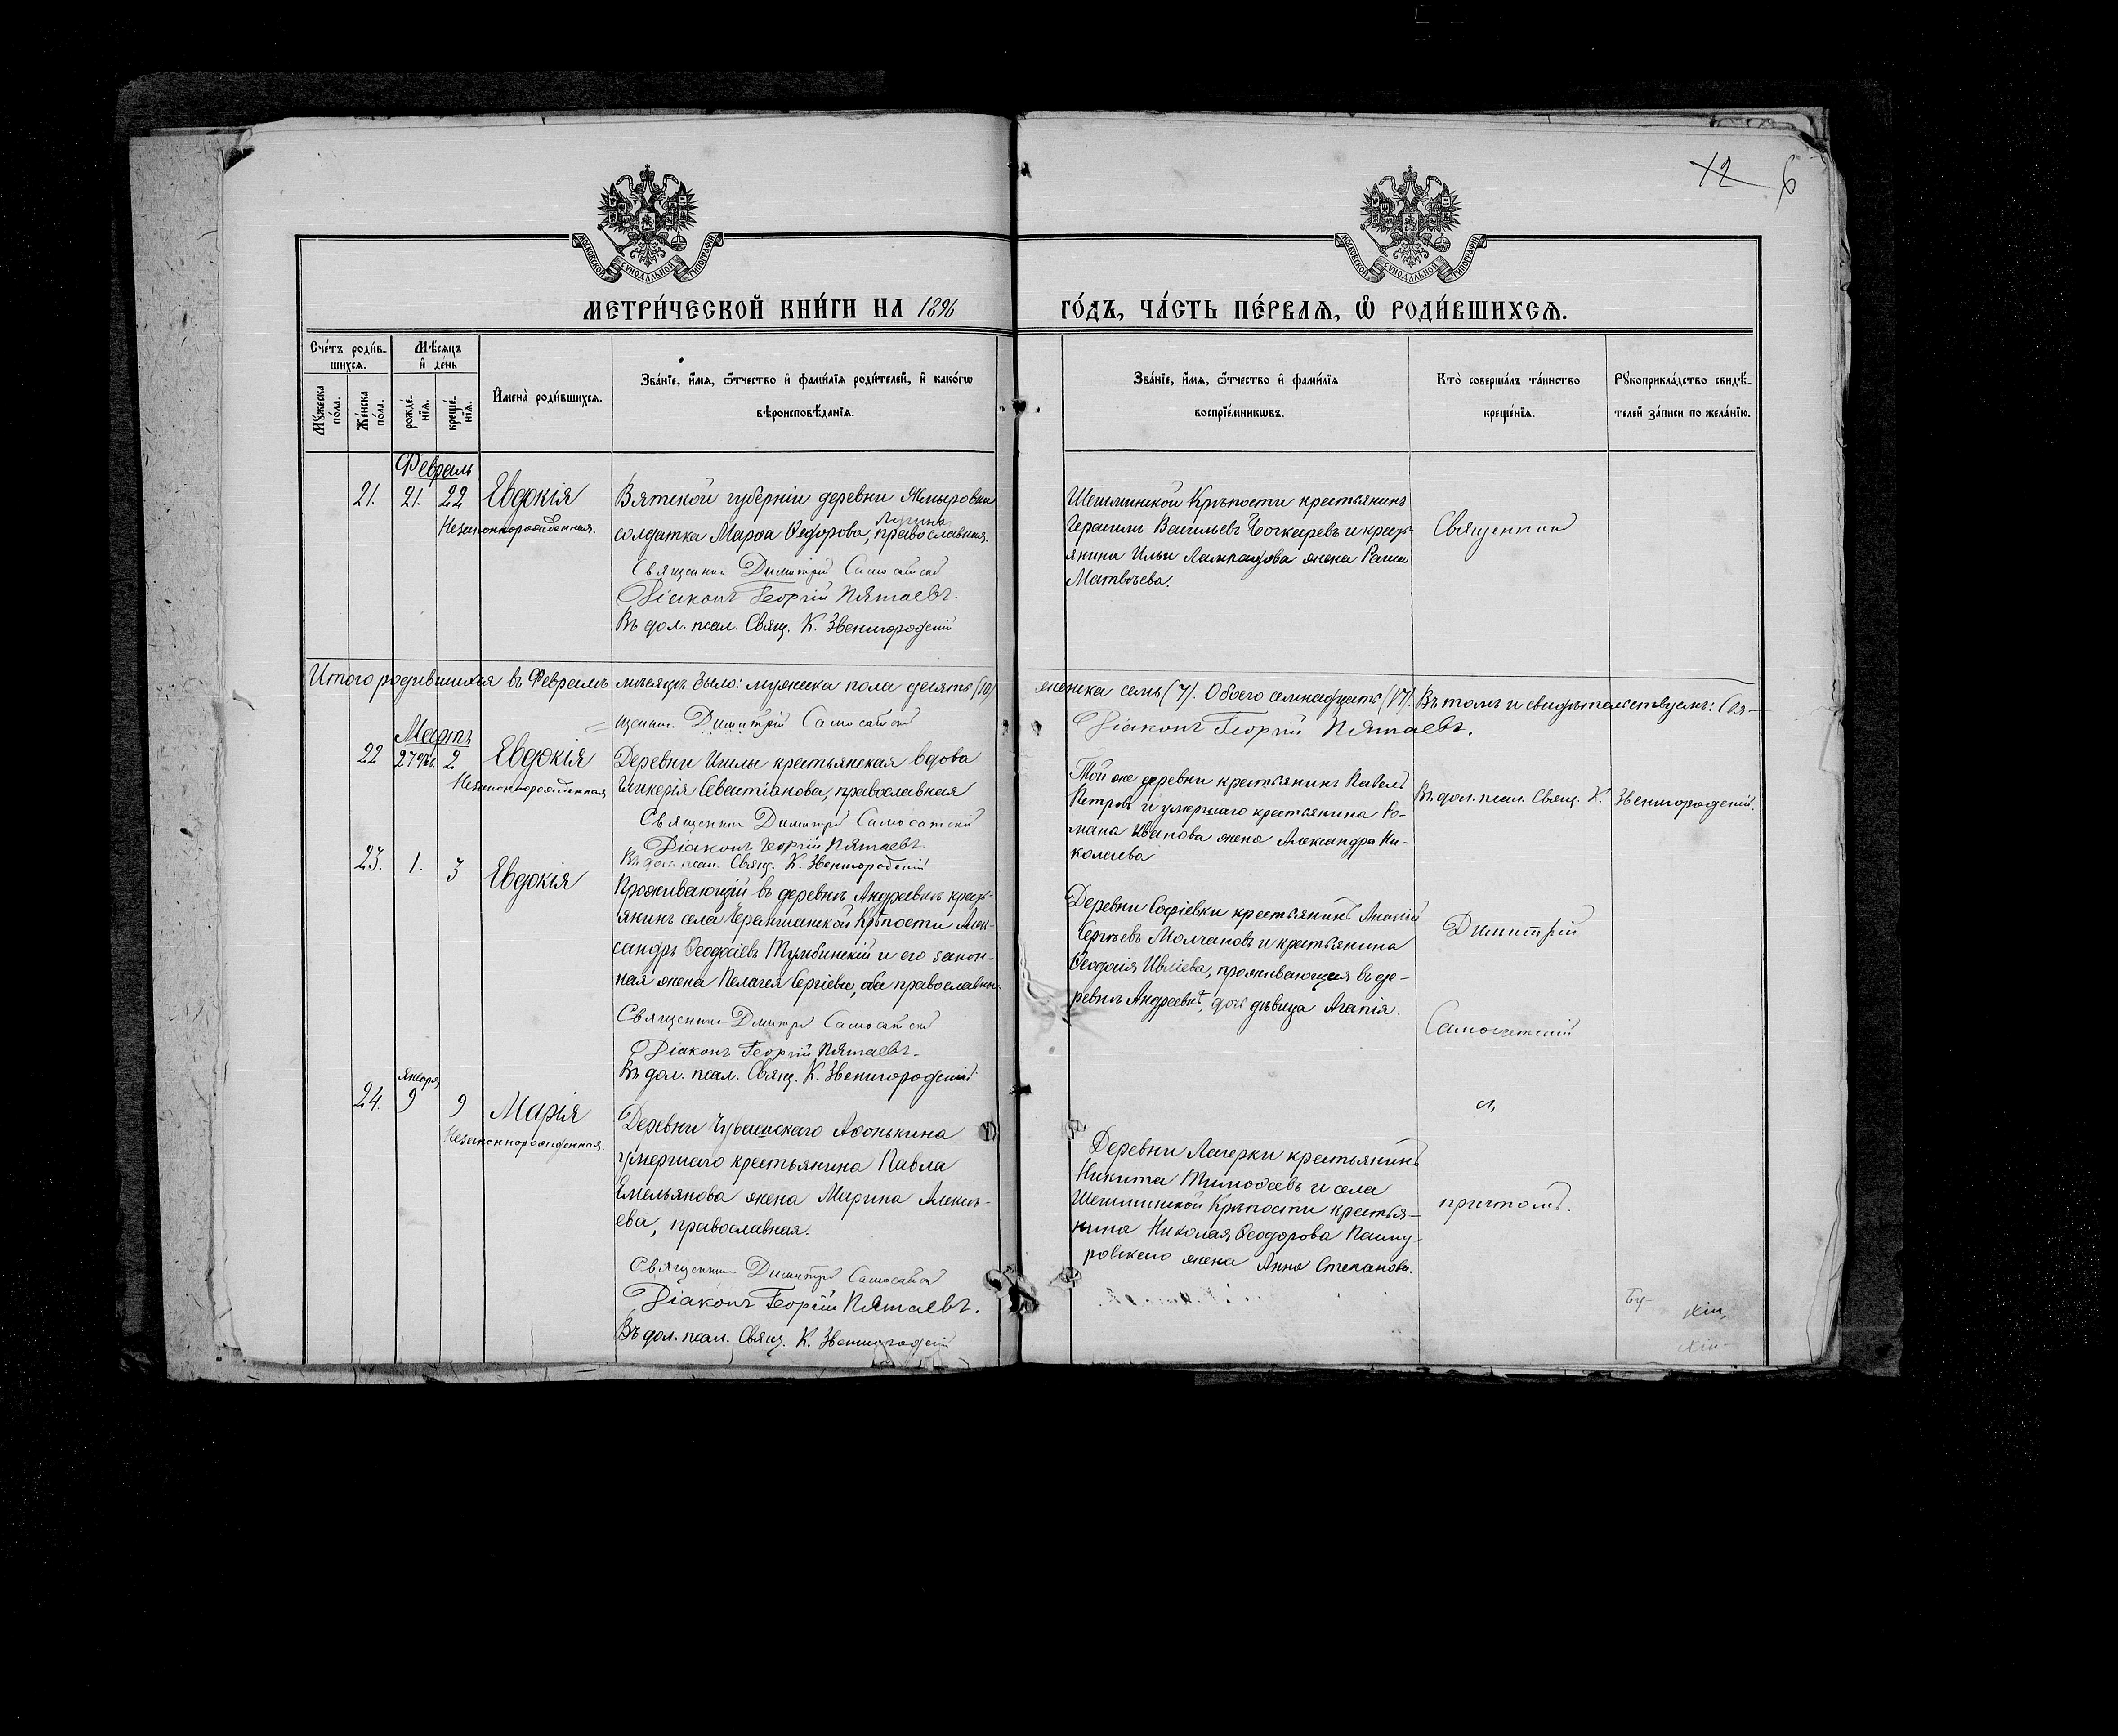 12 6
МОСКОВСКОЙ СѴНОДАЛЬНОЙ ТИПОГРАФІИ
МОСКОВСКОЙ СѴНОДАЛЬНОЙ ТИПОГРАФІИ
МЕТРИ́ЧЕСКОЙ КНИ́ГИ НА 1896 ГО́ДЪ, ЧА́СТЬ ПЕ́РВАѦ, Ѽ РОДИ́ВШИХСѦ.
Сче́тъ роди́в-
шихсѧ.
Мѣ́сѧцъ
и҆ де́нь
Мꙋ́жеска
по́ла.
Же́нска
по́ла.
рожде́-
нїѧ.
креще́-
нїѧ.
И҆мена̀ роди́вшихсѧ.
Зва́нїе, и҆́мѧ, ѻ҆́тчество и҆ фами́лїѧ роди́телей, и҆ како́гѡ
вѣроисповѣ́данїѧ.
Зва́нїе, и҆́мѧ, ѻ҆́тчество и҆ фами́лїѧ
воспрїе́мникѡвъ.
Кто̀ соверша́лъ та́инство
креще́нїѧ.
Рꙋкоприкла́дство свидѣ́-
телей за́писи по жела́нїю.
Февраль
21. 21. 22 Евдокія
Незаконнорожденная.
Вятской губерніи деревни
солдатка Марѳа Ѳедорова, православная.
Священникъ Димитрій Самосатскій
Діаконъ Георгій Пятаевъ.
Въ дол. псал. Свящ. К. Звенигородскій
Шешминской Крѣпости крестьянинъ
Герасимъ Васильевъ Бочкаревъ и крест-
янина Ильи жена
Матвѣева.
Священникъ
Итого родившихся въ Февралѣ мѣсяцѣ было: мужеска пола десять (10) женска семь (7). Обоего семнадцать (17). Въ томъ и свидѣтельствуемъ: Свя-
щенникъ Димитрій Самосатскій
Діаконъ Георгій Пятаевъ.
Въ дол. псал. Свящ. К. Звенигородскій.
Мартъ
22 27 Фев. 2 Евдокія
Незаконнорожденная
Деревни Ишлы крестьянская вдова
Гликерія Севастіанова, православная
Священникъ Димитрій Самосатскій
Діаконъ Георгій Пятаевъ.
Въ дол. псал. Свящ. К. Звенигородскій
Той же деревни крестьянинъ Павелъ
Петровъ и умершаго крестьянина Ро-
мана Иванова жена Александра Ни-
колаева
23. 1. 3 Евдокія
Проживающій въ деревнѣ Андреевкѣ крест-
янинъ села Черемшанской Крѣпости Алек-
сандръ Ѳеодосіевъ Тумбинскій и его закон-
ная жена Пелагея Сергіева, оба православны.
Священникъ Димитрій Самосатскій
Діаконъ Георгій Пятаевъ.
Въ дол. псал. Свящ. К. Звенигородскій
Деревни Софіевки крестьянинъ
Сергѣевъ Молчановъ и крестьянина
Ѳеодосія Ивліева, проживающая въ де-
ревнѣ Андреевкѣ, дочь дѣвица Агапія.
Димитрій
Самосатскій
Января
24. 9 9 Марія
Незаконнорожденная.
Деревни Чувашскаго Аѳонькина
умершаго крестьянина Павла
Емельянова жена Марина Алексѣ-
ева, православная.
Священникъ Димитрій Самосатскій
Діаконъ Георгій Пятаевъ.
Въ дол. псал. Свящ. К. Звенигородскій
Деревни Лагерки крестьянинъ
Никита Тимоѳеевъ и села
Шешминской Крѣпости крестья-
нина Николая Ѳеодорова
жена Анна Степанова.
съ
причтомъ.